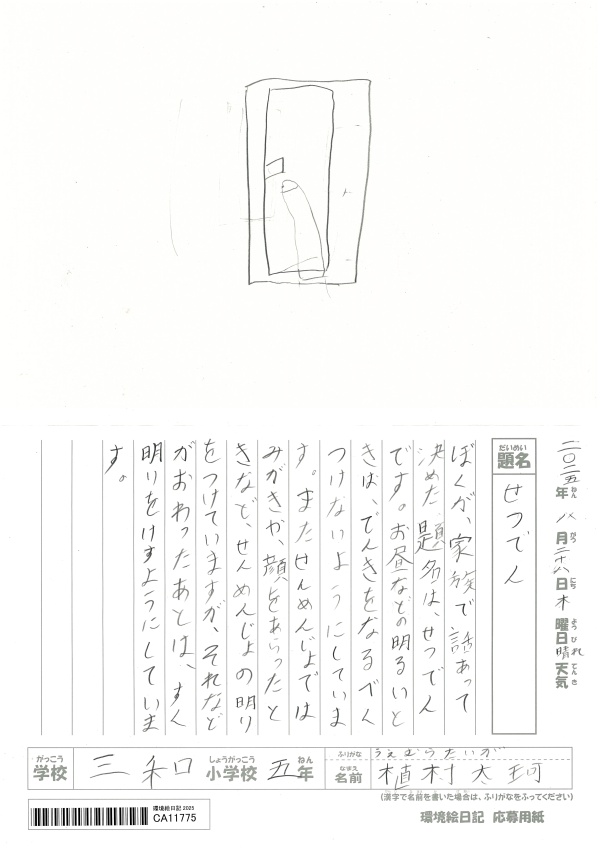 二〇二五年八月二十八日木曜日晴天気
ねん がつ にち ようび れ てんき
だいめい
題名
せつでん
ぼくが、家族で話あって
決めた題名は、せつでん
です。お昼などの明るいと
きは、でんきをなるべく
つけないようにしていま
す。またせんめんじょでは
みがきや、顔をあらったと
きなど、せんめんじょの明り
をつけていますが、それなど
がおわったあとは、すぐ
明りをけすようにしていま
す。
がっこう
学校
三和
しょうがっこう
小学校
五
ねん
年
ふりがな
うえむらたいが
なまえ
名前
植村大珂
(漢字で名前を書いた場合は、ふりがなをふってください)
環境絵日記 2025
CA11775
環境絵日記 応募用紙